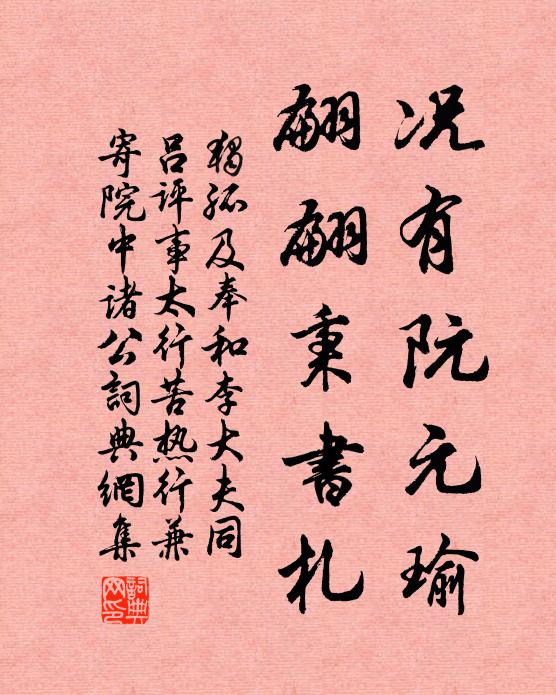 况有阮元瑜
翩翩秉書札
獨孤及奉和李大夫同
呂评事太行苦热行兼
寄院中诸公詞典網集
詞典網印